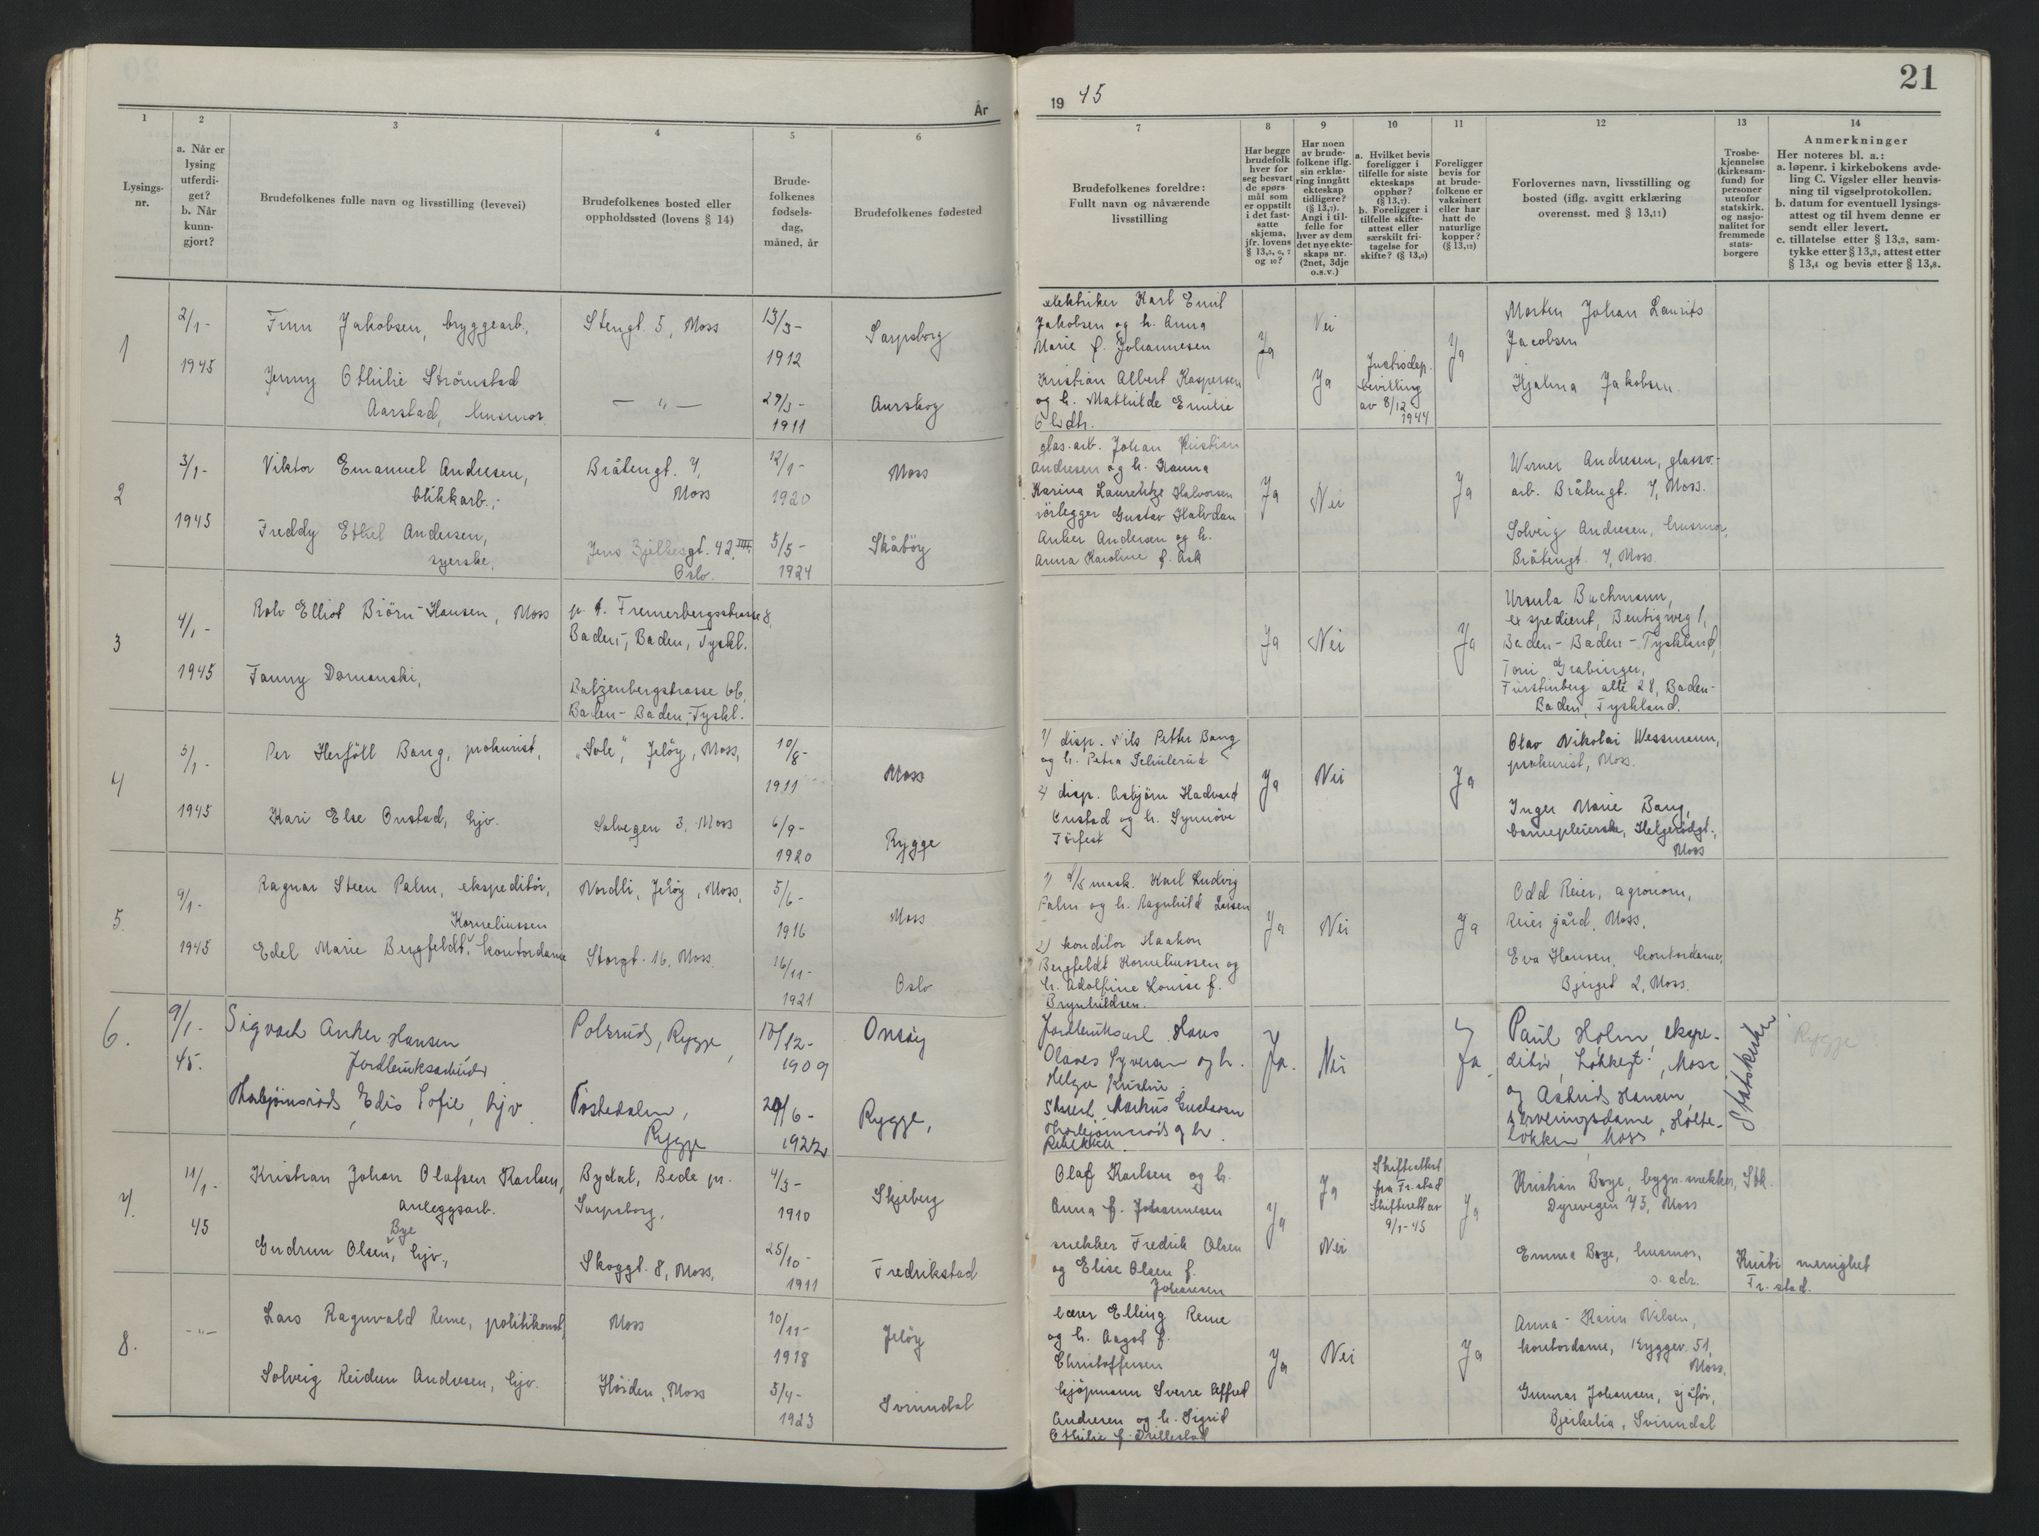 År
1
2
3
4
5
6
Lysings-
nr.
a. Når er
lysing
utferdi-
get?
b. Når
kunn-
gjort?
Brudefolkenes fulle navn og livsstilling (levevei)
Brudefolkenes bosted eller
oppholdssted (lovens § 14)
Brude-
folkenes
fødsels-
dag,
måned, år
Brudefolkenes fødested
1
2/1-
1945
Finn Jakobsen, bryggearb,
Jenny Othilie Strømstad
Aarstad, husmor.
Stengt. 5, Moss
— „ —
13/3-
1912
29/3-
1911
Sarpsborg
Aurskog
2
3/1-
1945
Viktor Emanuel Andresen,
blikkarb.,
Freddy Ethel Andersen,
syerske,
Bråtengt. 7,
Moss
Jens Bjelkesgt. 42 III,
Oslo.
12/1-
1920
5/5-
1924
Moss
Skåbøy
3
4/1-
1945
Rolv Elliot Biørn-Hansen, Moss
Fanny Domanski,
p. t. Fremerbergstrasse 8,
Baden-, Baden, Tyskl.
Batzenbergstrasse 66,
Baden-Baden, Tyskl.
4
5/1-
1945
Per Herføll Bang, prokurist,
Kari Else Onstad, hjv.
„Sole", Jeløy, Moss,
Solvegen 3, Moss
10/8-
1911
6/9-
1920
Moss
Rygge
5.
9/1-
1945
Ragnar Steen Palm, ekspeditør,
Korneliussen
Edel Marie Bergfeldt, kontordame
Nordli, Jeløy, Moss,
Storgt. 16, Moss.
5/6-
1916
16/11-
1921
Moss
Oslo
6.
9/1-
45.
Sigvart Anker Hansen
Jordbruksarbeider
Thorbjørnsrød, Edis Sofie, hjv.
Rygge,
Rygge
10/12-
1909
20/6-
1922
Onsøy
Rygge,
7.
11/1-
45
Kristian Johan Olafsen Karlsen,
anleggsarb.
Bye
Gudrun Olsen, hjv.,
Bydal, Bede pr.
Sarpsborg,
Skoggt. 8, Moss,
4/3-
1910
25/10-
1911
Skjeberg
Fredrikstad
8.
— „ —
Lars Ragnvald Reme, politikonst,
Solveig Reidun Andresen, hjv.
Moss
Høiden, Moss
10/11-
1918
5/4-
1923
Jeløy
Svinndal
19 45
21
7
8
9
10
11
12
13
14
Brudefolkenes foreldre:
Fullt navn og nåværende
livsstilling
Har begge
brudefolk
hver for
seg besvart
de spørs-
mål som
er oppstilt
i det fast-
satte
skjema,
jfr. lovens
§ 13,5, 6, 7
og 10?
Har noen
av brude-
folkene iflg.
sin erklæ-
ring inngått
ekteskap
tidligere?
(§ 13,7).
Angi i til-
felle for
hver av dem
det nye ekte-
skaps nr.
(2net, 3dje
o.s.v.)
a. Hvilket bevis
foreligger i
tilfelle for siste
ekteskaps
opphør?
(§ 13,7).
b. Foreligger i
tilfelle skifte-
attest eller
særskilt fri-
tagelse for
skifte? (§ 13,9)
Foreligger
bevis for
at brude-
folkene er
vaksinert
eller har
hatt de
naturlige
kopper?
(§ 13,12)
Forlovernes navn, livsstilling og
bosted (iflg. avgitt erklæring
overensst. med § 13,11)
Trosbe-
kjennelse
(kirkesam-
fund) for
personer
utenfor
statskirk.
og nasjo-
nalitet for
fremmede
stats-
borgere
Anmerkninger
Her noteres bl. a.:
a. løpenr. i kirkebokens avde-
ling C. Vigsler eller henvis-
ning til vigselprotokollen.
b. datum for eventuell lysings-
attest og til hvem denne er
sendt eller levert.
c. tillatelse etter § 13,2, sam-
tykke etter § 13,3, attest etter
§ 13,4 og bevis etter § 13,8.
elektriker Karl Emil
Jakobsen og h. Anna
Marie f. Johannesen
Kristian Albert Kaspersen
og h. Mathilde Emilie
Ja
Nei
Ja
Justisdep.
bevilling
av 8/12
1944
Ja
Morten Johan Laurits
Jacobsen
Hjalma Jakobsen.
glas.arb. Johan Kristian
Andresen og h. Hanna
Karina Laurentze Halvorsen
rørlegger Gustav Halvdan
Anker Andersen og h.
Anna Karoline f. Ask
Ja
Nei
Ja
Werner Andresen, glasso.-
arb. Bråtengt. 7, Moss.
Solveig Andresen, husmor,
Bråtengt. 7, Moss.
Ja
Nei
Ja
Ursula Buchmann,
ekspedient, Bentigweg 1,
Baden-Baden-Tyskland,
Toni Grabinger,
Fürstinberg alle 28, Baden-
Baden, Tyskland.
1) disp. Nils Petter Bang
og h. Petra Schulerud
2) disp. Asbjørn Hadvard
Onstad og h. Synnøve
Torfest
Ja
Nei
Ja
Olav Nikolai Wessmann,
prokurist, Moss.
Inger Marie Bang,
barnepleierske, Helgerødgt.,
Moss
1) mask. Karl Ludvig
Palm og h. Ragnhild Larsen
2) konditor Haakon
Bergfeldt Korneliussen og
h. Adolfine Louise f.
Brynhildsen.
Ja
Nei
Ja
Odd Reier, agronom,
Reier gård, Moss.
Eva Hansen, kontordame,
Bjerget 2, Moss.
Hans
Olaves Syversen og h.
Helga Kristine
Markus Gustavsen
Thorbjørnsrød og h.
Rebekka.
Ja.
Nei
Ja.
Paul Holm, ekspe-
ditør, Løkkegt., Moss
og Astrid Hansen,
serveringsdame, Holte-
løkken Moss
Statskirken
Rygge
Olaf Karlsen og h.
Anna f. Johannesen
snekker Fredrik Olsen
og Elise Olsen f.
Johansen
Ja
Ja
Nei
Skifteattest
fra Fr.stad
Skifterett av
9/1-45
Ja
Kristian Bye, bygn.snekker,
Dyrevegen 73, Moss
Emma Bye, husmor,
s. adr.
Stk.
Kristi menighet
Fr. stad.
lærer Elling Reme
og h. Aagot f.
Christoffersen
kjøpmann Sverre Alfred
Andresen og h. Sigrid
Othilie f. Trillestad
Ja
Nei
Ja
Anna-Karin Nilsen,
kontordame, Ryggev. 51,
Moss,
Gunnar Johansen, sjåfør,
Bjerkelia, Svinndal